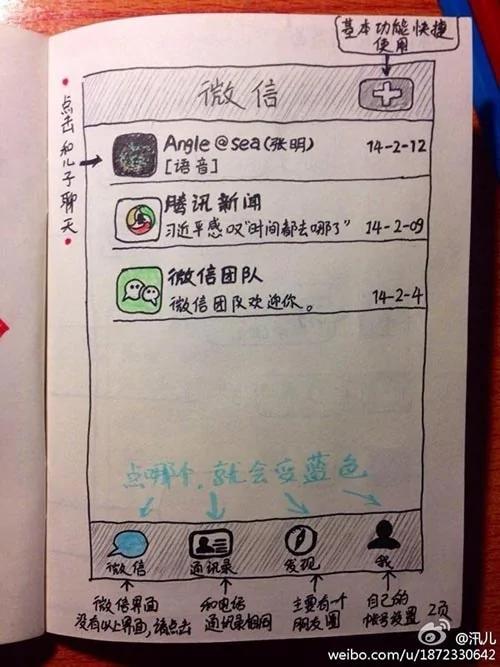 基本功能快捷
使用
微信
点击和儿子聊天
Angle@sea(张明) 14-2-12
[语音]
腾讯新闻
习近平感叹"时间都去哪了" 14-2-09
微信团队
微信团队欢迎你。 14-2-4
点哪个,就会变蓝色
微信 通讯录 发现 我
微信界面
没有以上界面,请点击
和电话
通讯录相同
主要有一个
朋友圈
自己的
帐号设置
2页
@汛儿
weibo.com/u/1872330642